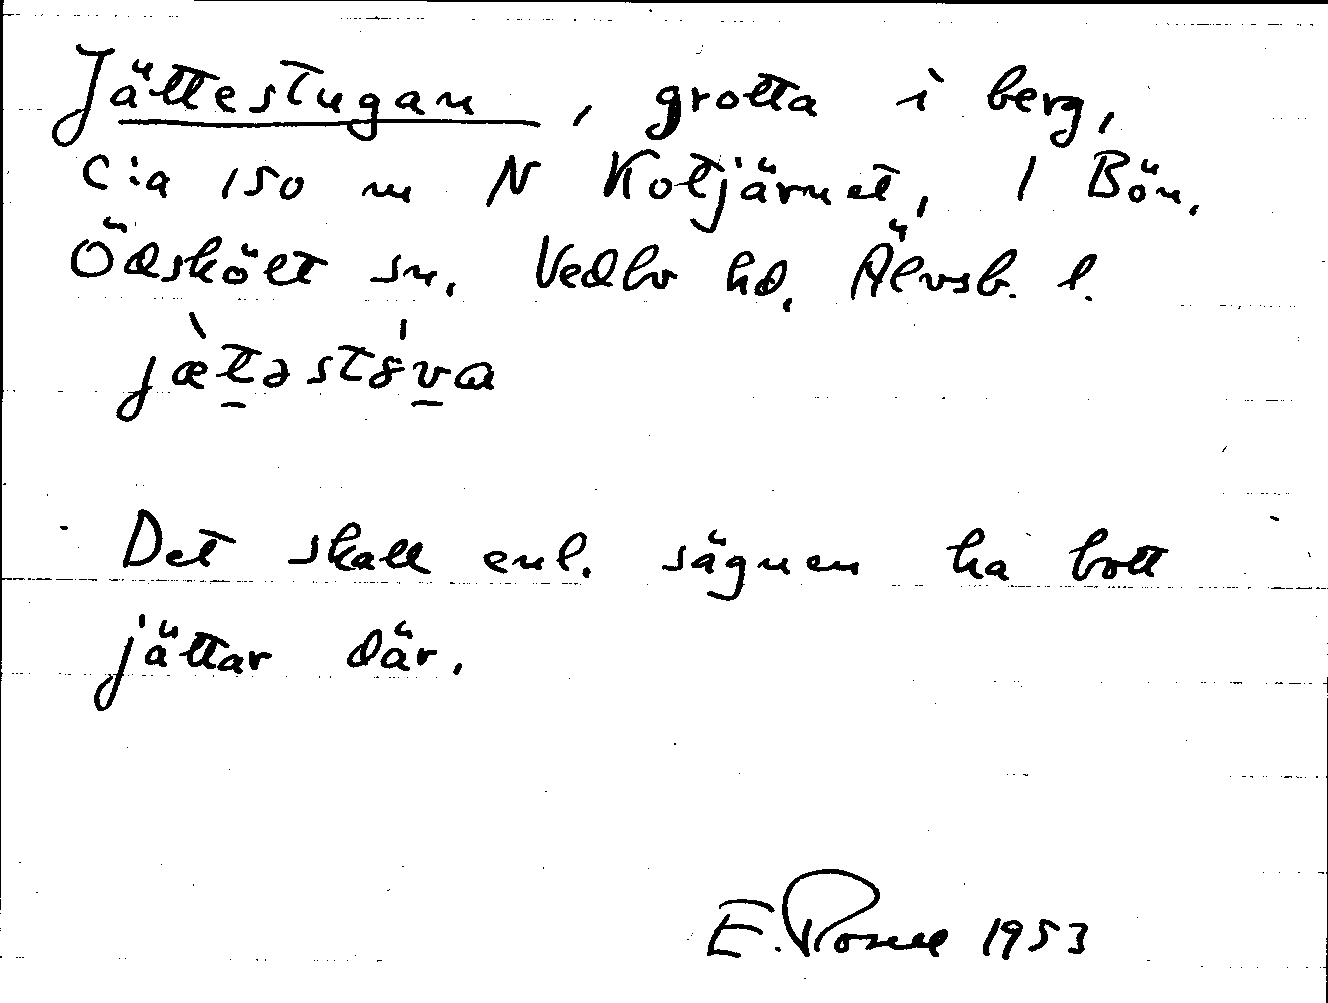 Jättestugan, grotta i berg,
c:a 150 m N Kotjärnet, 1 Bön.
Ödskölt sn. Vedbo hd. Älvsb. l.
jæ̀təstó̤va
Det skall enl. sägnen ha bott
jättar där.
E. Rosell 1953